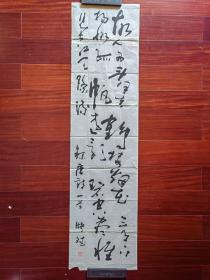 故人西辞黄鹤楼烟花三月下
扬州孤帆远影碧空尽唯
见长江天际流 录唐诗一首